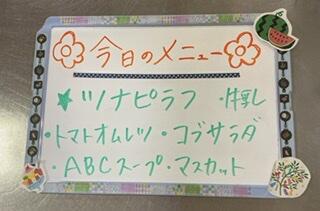 今日のメニュー
★ツナピラフ ・牛乳
・トマトオムレツ・コブサラダ
・ABCスープ・マスカット